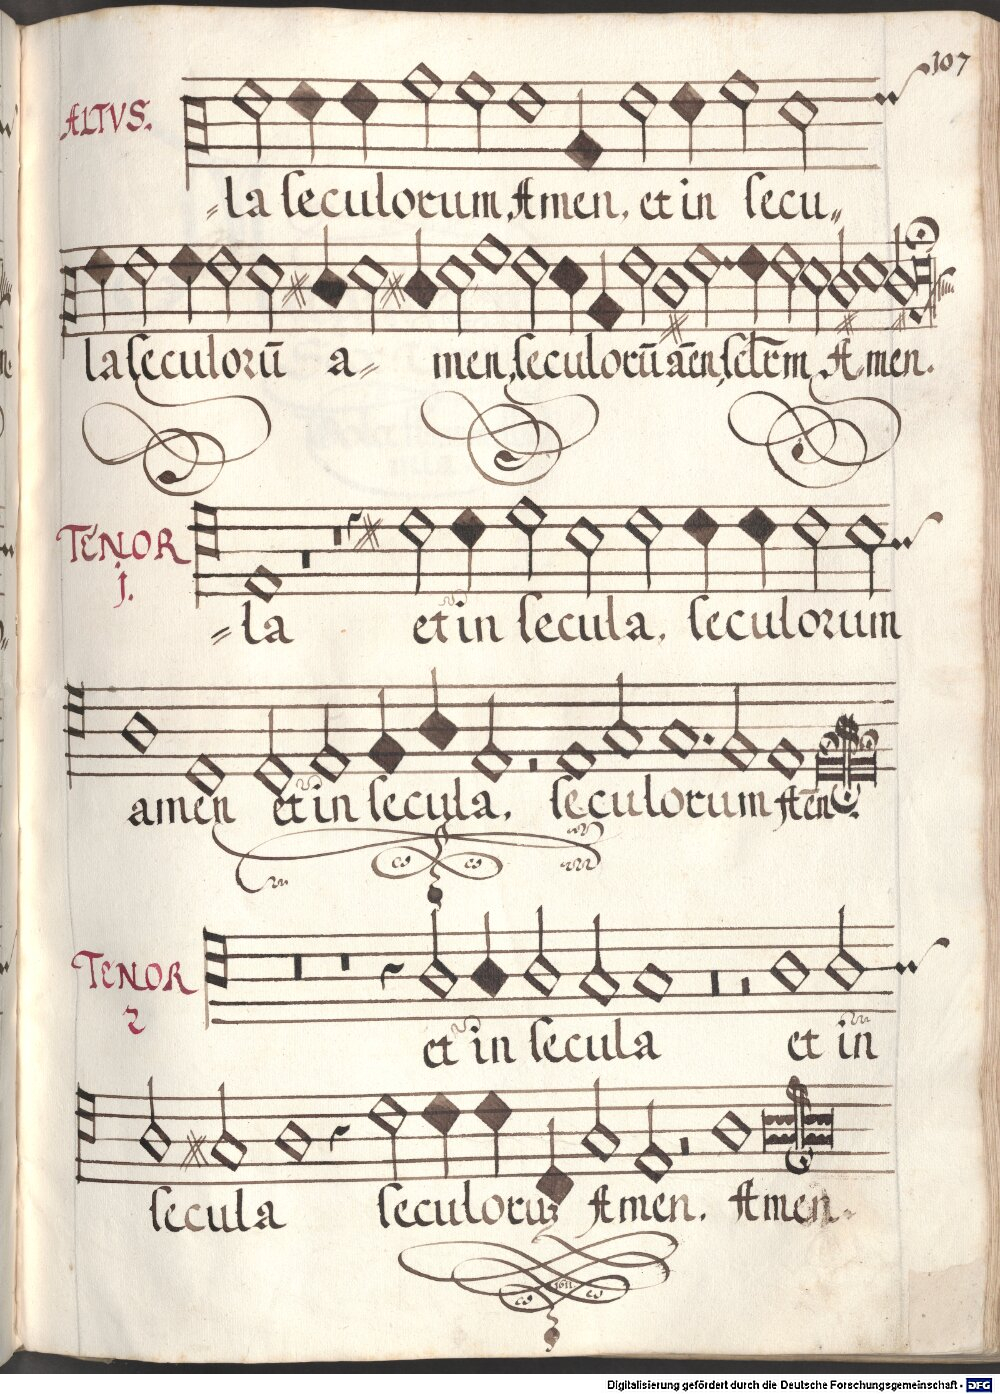 107
ALTVS.
〃la seculorum, Amen, et in secu〃
la seculorū a〃 men, seculorū aēn, selr̄m Amen.
TENOR
j.
〃la et in secula, seculorum
amen et in secula, seculorum Aēn.
TENOR
2
et in secula et in
secula seculoruʒ Amen. Amen.
1611
Digitalisierung gefördert durch die Deutsche Forschungsgemeinschaft - DFG